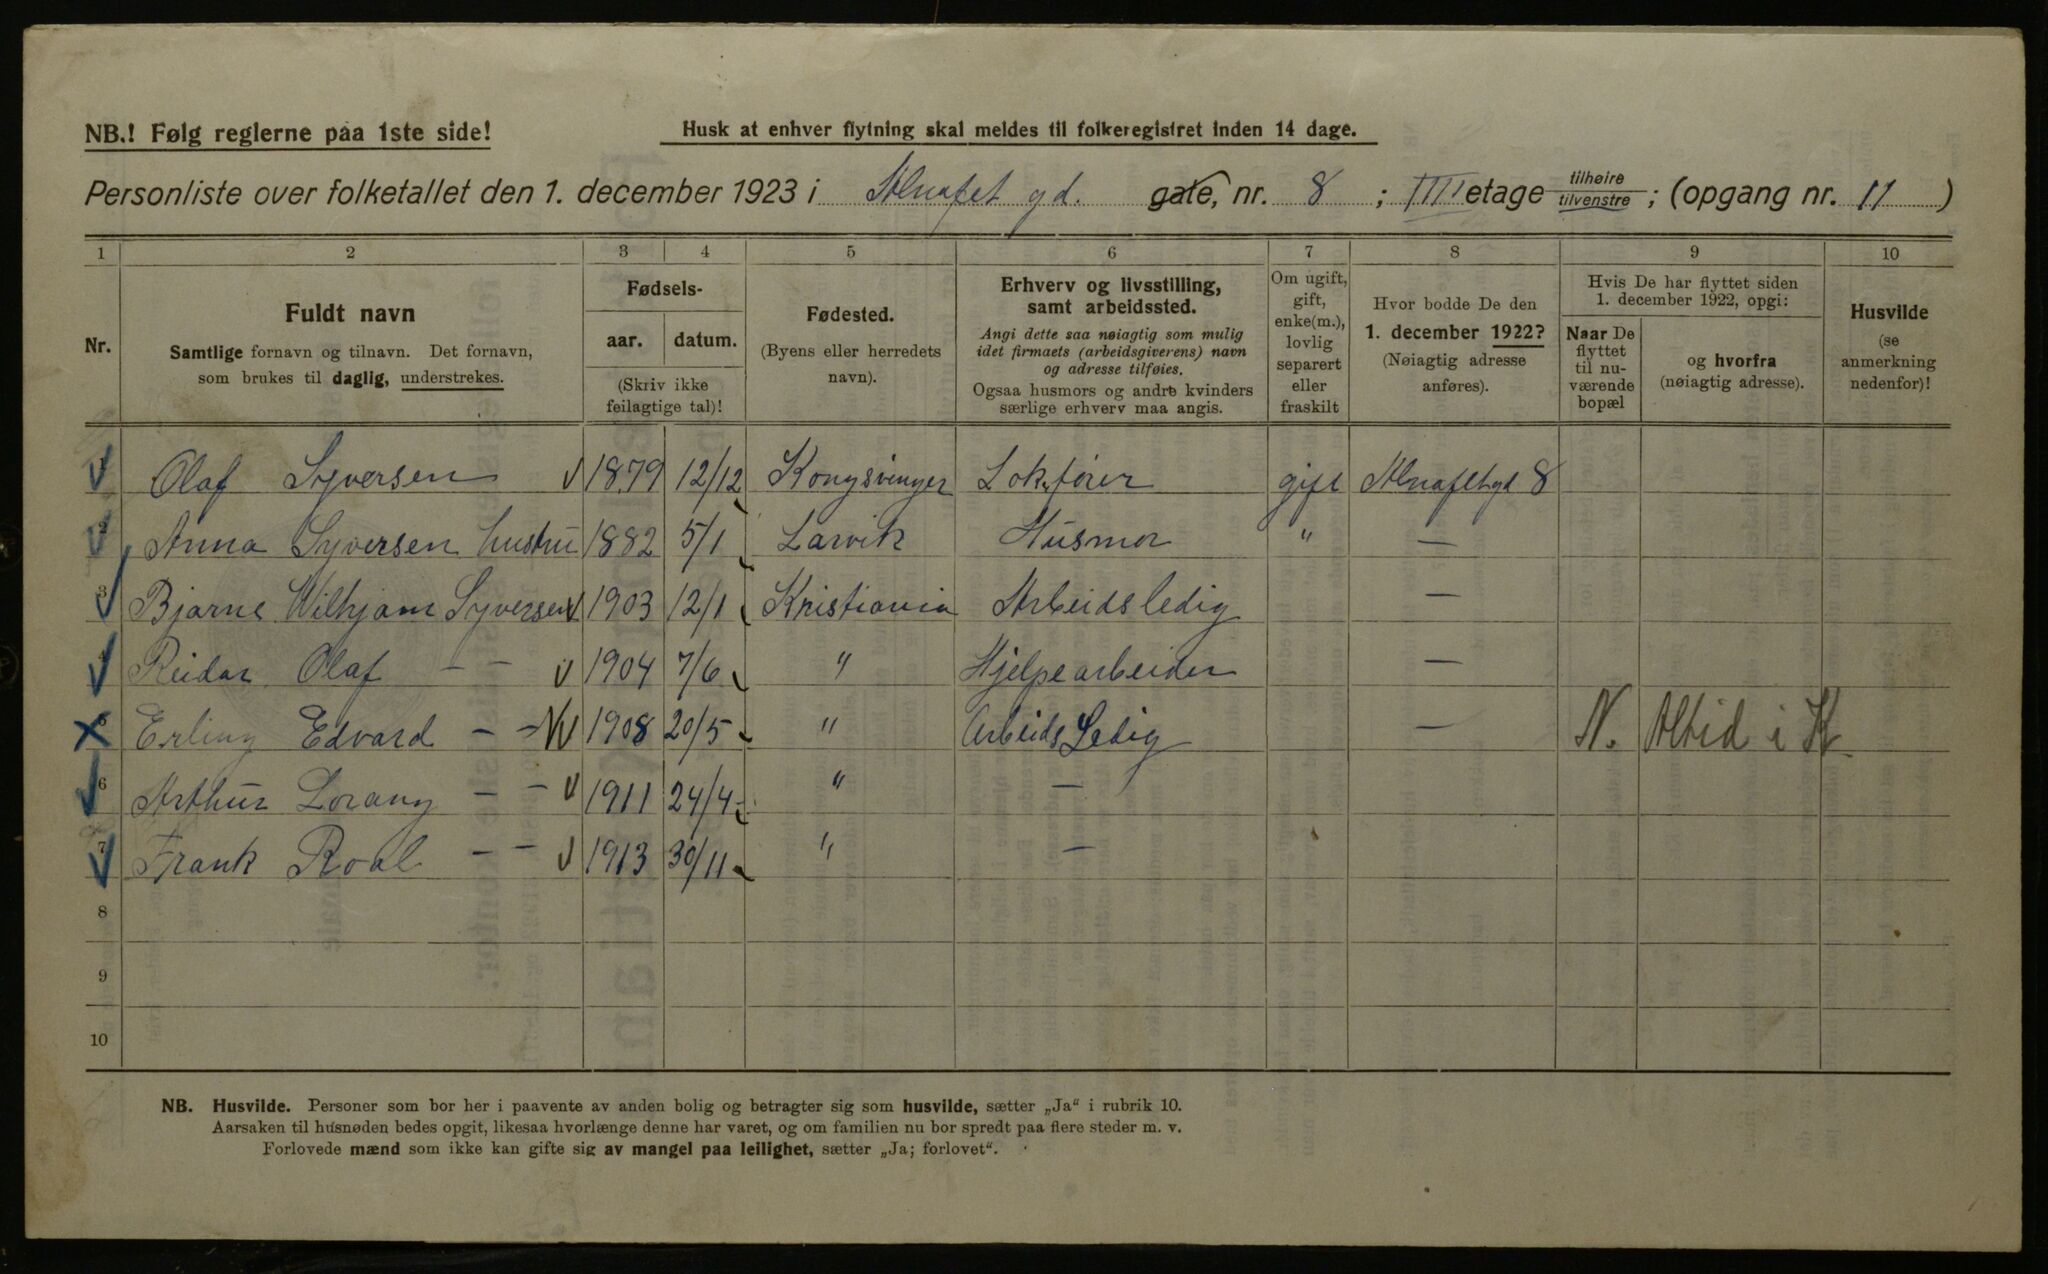 NB.! Følg reglerne paa 1ste side!
Husk at enhver flytning skal meldes til folkeregistret inden 14 dage.
Personliste over folketallet den 1. december 1923 i Alnafet gd. gate, nr. 8 ; IIII etage tilhøire tilvenstre ; (opgang nr. 11 )
1 2 3 4 5 6 7 8 9 10
Nr.
Fuldt navn
Samtlige fornavn og tilnavn. Det fornavn,
som brukes til daglig, understrekes.
Fødsels-
aar. datum.
(Skriv ikke
feilagtige tal)!
Fødested.
(Byens eller herredets
navn).
Erhverv og livsstilling,
samt arbeidssted.
Angi dette saa nøiagtig som mulig
idet firmaets (arbeidsgiverens) navn
og adresse tilføies.
Ogsaa husmors og andre kvinders
særlige erhverv maa angis.
Om ugift,
gift,
enke(m.),
lovlig
separert
eller
fraskilt
Hvor bodde De den
1. december 1922?
(Nøiagtig adresse
anføres).
Hvis De har flyttet siden
1. december 1922, opgi:
Naar De
flyttet
til nu-
værende
bopæl
og hvorfra
(nøiagtig adresse).
Husvilde
(se
anmerkning
nedenfor)!
1 Olaf Syversen 1879 12/12 Kongsvinger Lok.fører gift Alnafetgd 8
2 Anna Syversen hustru 1882 5/1 Larvik Husmor " —
3 Bjarne Wilhjam Syversen 1903 12/1 Kristiania Arbeidsledig —
4 Reidar Olaf — — 1904 7/6 " Hjelpearbeider —
5 Erling Edvard — — N 1908 20/5 " Arbeids Ledig — N. Altid i K
6 Arthur Lorang — — 1911 24/4 " —
7 Frank Roal — — 1913 30/11 " —
8
9
10
NB. Husvilde. Personer som bor her i paavente av anden bolig og betragter sig som husvilde, sætter „Ja" i rubrik 10.
Aarsaken til husnøden bedes opgit, likesaa hvorlænge denne har varet, og om familien nu bor spredt paa flere steder m. v.
Forlovede mænd som ikke kan gifte sig av mangel paa leilighet, sætter „Ja; forlovet".